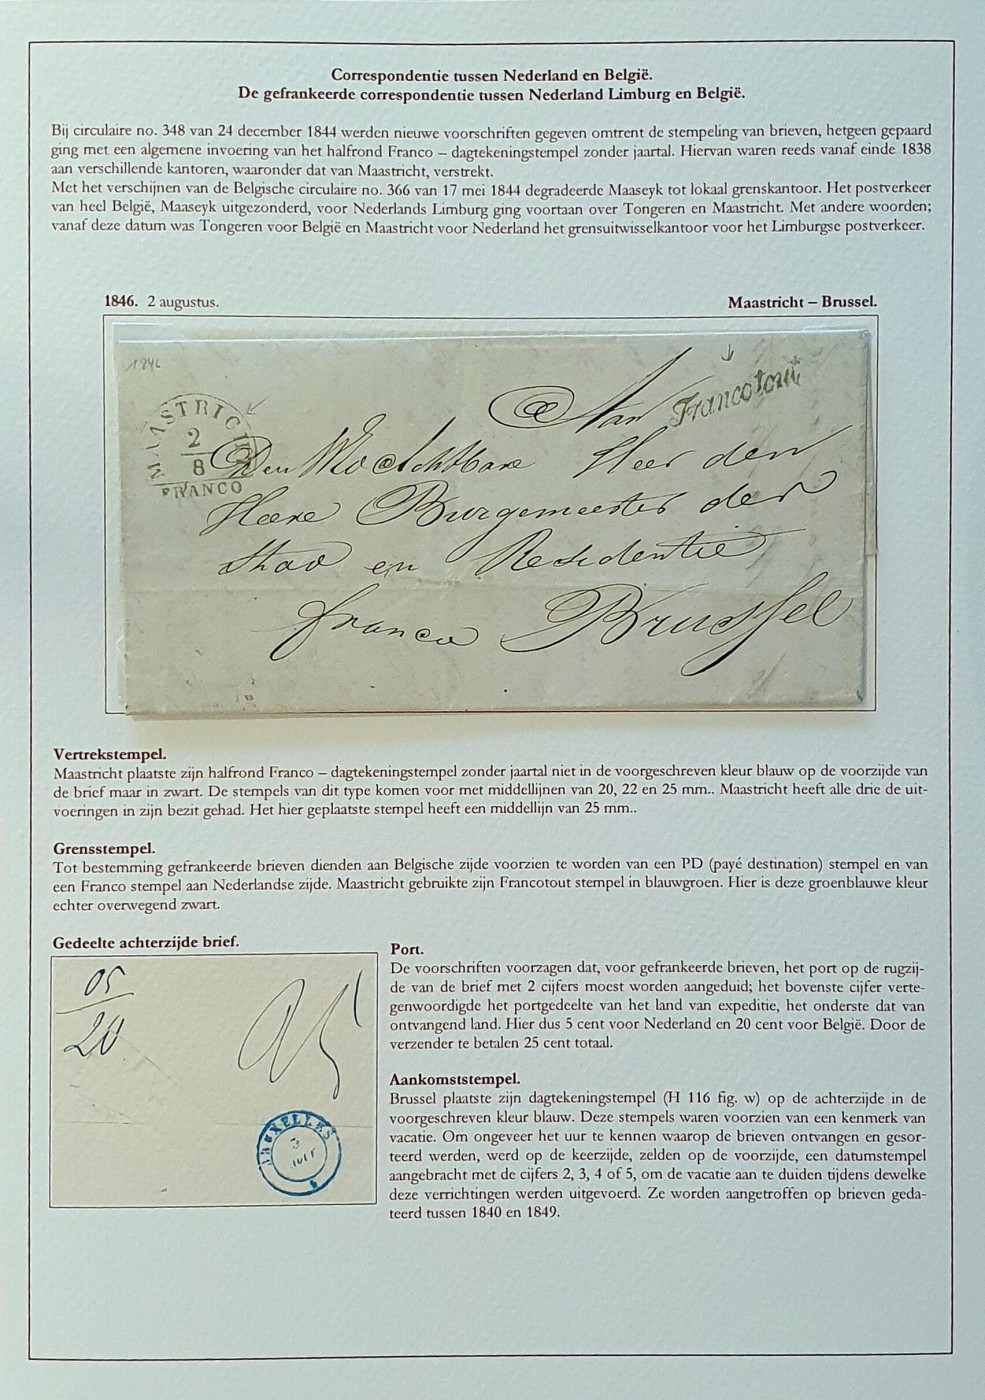 Correspondentie tussen Nederland en België.
De gefrankeerde correspondentie tussen Nederland Limburg en België.
Bij circulaire no. 348 van 24 december 1844 werden nieuwe voorschriften gegeven omtrent de stempeling van brieven, hetgeen gepaard
ging met een algemene invoering van het halfrond Franco – dagtekeningstempel zonder jaartal. Hiervan waren reeds vanaf einde 1838
aan verschillende kantoren, waaronder dat van Maastricht, verstrekt.
Met het verschijnen van de Belgische circulaire no. 366 van 17 mei 1844 degradeerde Maaseyk tot lokaal grenskantoor. Het postverkeer
van heel België, Maaseyk uitgezonderd, voor Nederlands Limburg ging voortaan over Tongeren en Maastricht. Met andere woorden;
vanaf deze datum was Tongeren voor België en Maastricht voor Nederland het grensuitwisselkantoor voor het Limburgse postverkeer.
1846. 2 augustus.
Maastricht – Brussel.
1846
MAASTRICHT
2
8
FRANCO
Francotout
Aan
Den Achtbare Heer den
Heere Burgemeester der
Stad en Residentie
franco Brussel
Vertrekstempel.
Maastricht plaatste zijn halfrond Franco – dagtekeningstempel zonder jaartal niet in de voorgeschreven kleur blauw op de voorzijde van
de brief maar in zwart. De stempels van dit type komen voor met middellijnen van 20, 22 en 25 mm.. Maastricht heeft alle drie de uit-
voeringen in zijn bezit gehad. Het hier geplaatste stempel heeft een middellijn van 25 mm..
Grensstempel.
Tot bestemming gefrankeerde brieven dienden aan Belgische zijde voorzien te worden van een PD (payé destination) stempel en van
een Franco stempel aan Nederlandse zijde. Maastricht gebruikte zijn Francotout stempel in blauwgroen. Hier is deze groenblauwe kleur
echter overwegend zwart.
Gedeelte achterzijde brief.
05
20
25
BRUXELLES
3
Port.
De voorschriften voorzagen dat, voor gefrankeerde brieven, het port op de rugzij-
de van de brief met 2 cijfers moest worden aangeduid; het bovenste cijfer verte-
genwoordigde het portgedeelte van het land van expeditie, het onderste dat van
ontvangend land. Hier dus 5 cent voor Nederland en 20 cent voor België. Door de
verzender te betalen 25 cent totaal.
Aankomststempel.
Brussel plaatste zijn dagtekeningstempel (H 116 fig. w) op de achterzijde in de
voorgeschreven kleur blauw. Deze stempels waren voorzien van een kenmerk van
vacatie. Om ongeveer het uur te kennen waarop de brieven ontvangen en gesor-
teerd werden, werd op de keerzijde, zelden op de voorzijde, een datumstempel
aangebracht met de cijfers 2, 3, 4 of 5, om de vacatie aan te duiden tijdens dewelke
deze verrichtingen werden uitgevoerd. Ze worden aangetroffen op brieven geda-
teerd tussen 1840 en 1849.